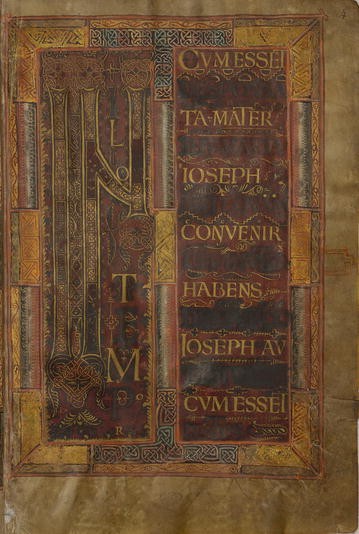 IN
L
O
T
M
R
CVMESSEI
TA·MATER
IOSEPH
CONVENIR
HABENS
IOSEPH AV
CVMESSEI